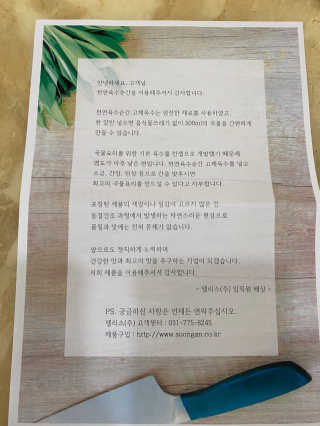 안녕하세요, 고객님
천연육수순간을 이용해주셔서 감사합니다.
천연육수순간 고체육수는 엄선한 재료를 사용하였고,
한 알만 넣으면 음식물쓰레기 없이 500ml의 국물을 간편하게
만들 수 있습니다.
국물요리를 위한 기본 육수를 컨셉으로 개발했기 때문에
염도가 아주 낮은 편입니다. 천연육수순간 고체육수를 넣고
소금, 간장, 된장 등으로 간을 맞추시면
최고의 국물요리를 만드실 수 있다고 자부합니다.
포장된 제품의 색상이나 질감이 고르지 않은 건
동결건조 과정에서 발생하는 자연스러운 현상으로
품질과 맛에는 전혀 문제가 없습니다.
앞으로도 정직하게 노력하며
건강한 맛과 최고의 맛을 추구하는 기업이 되겠습니다.
저희 제품을 이용해주셔서 감사합니다.
- 델리스(주) 임직원 배상 -
PS. 궁금하신 사항은 언제든 연락주십시오.
델리스(주) 고객센터 : 031-775-8245
제품구입 : http://www.soongan.co.kr